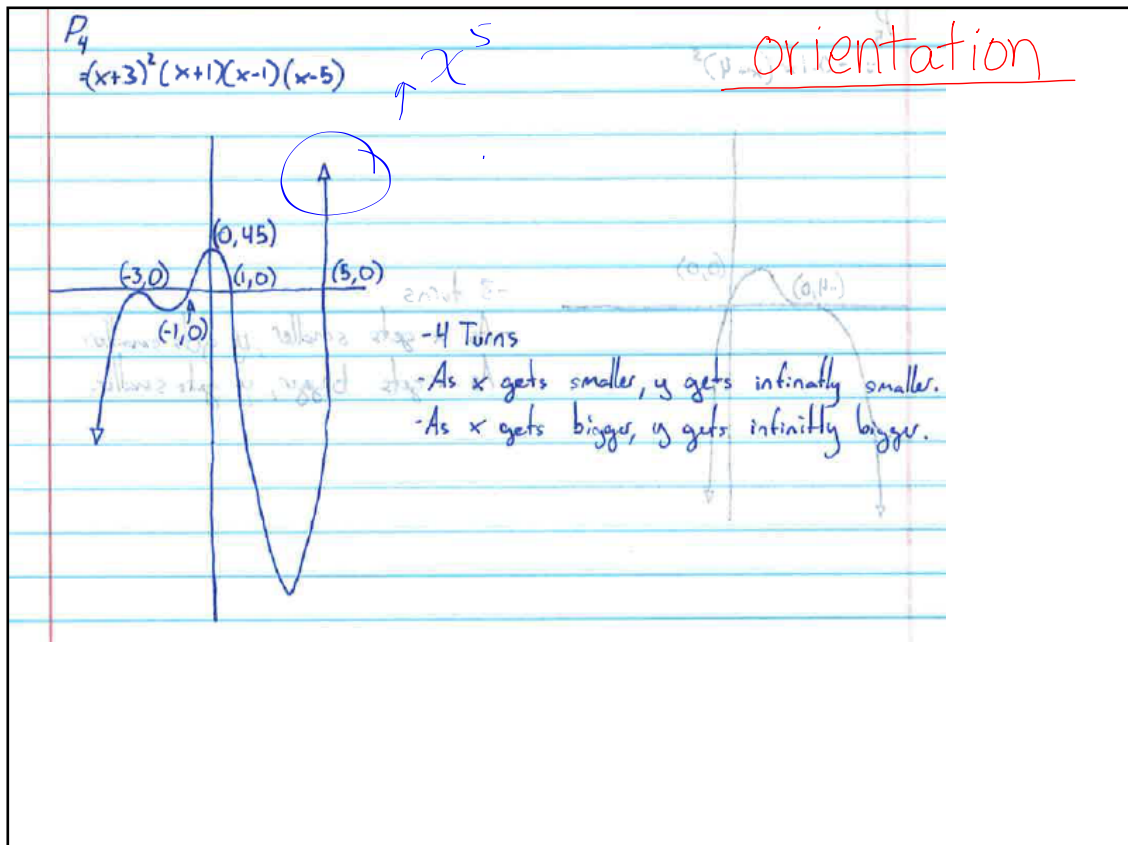 P4
=(x+3)²(x+1)(x-1)(x-5)
x⁵
orientation
(0,45)
(-3,0)
(1,0)
(5,0)
(-1,0)
-4 Turns
-As x gets smaller, y gets infinatly smaller.
-As x gets bigger, y gets infinitly bigger.
(0,0)
-3 turns